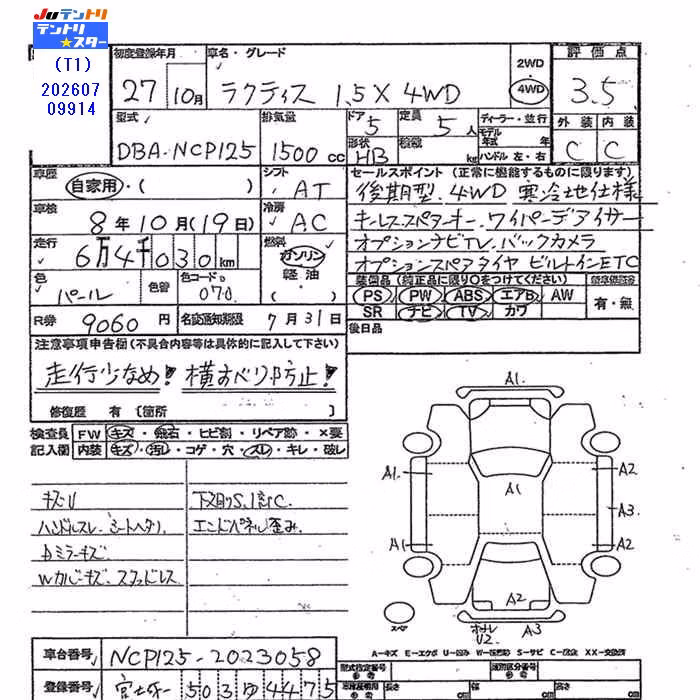 JUテントリ
テントリ
★スター
(T1)
202607
09914
初度登録年月
27 10月
車名・グレード
ラクティス 1.5X 4WD
2WD
4WD
評価点
3.5
外装 内装
C C
型式
DBA-NCP125
排気量
1500 cc
ドア
5
形状
HB
定員
5人
積載
kg
ディーラー・並行
モデル
年式 年
ハンドル 左・右
車歴
自家用・( )
シフト
AT
セールスポイント (正常に機能するものに限ります)
後期型. 4WD 寒冷地仕様
キーレス.スペアキー. ワイパーデアイサー
オプションナビTV. バックカメラ
オプションスペアタイヤ ビルトインETC
車検
8年 10月(19日)
冷房
AC
走行
6万4千030km
燃料
ガソリン
軽油
( )
色
パール
色替
色コード
070
装備品 (純正品に限り○をつけてください)
PS PW ABS エアB AW
SR ナビ TV カワ
有・無
後日品
R券 9060円
名変通知期限 7月31日
注意事項申告欄 (不具合内容等は具体的に記入して下さい)
走行少なめ! 横すべり防止!
修復歴 有 〔箇所 〕
検査員
記入欄
FW キズ・飛石・ヒビ割・リペア跡・×要
内装 キズ・汚レ・コゲ・穴・スレ・キレ・破レ
キズU
ハンドルスレ. シートヘタリ
Dミラーキズ
Wカバーキズ. スタッドレス
下廻りS.
エンドパネル歪み.
A1
A1 A1
A1
A2
A3
A2
A2
U2 A3
スペア
A-キズ E-エクボ U-凹み S-サビ C-腐食 XX-交換済
車台番号
NCP125-2023058
登録番号
503ゆ4475
型式指定番号
類別区分番号
長さ cm 幅 cm 高さ cm